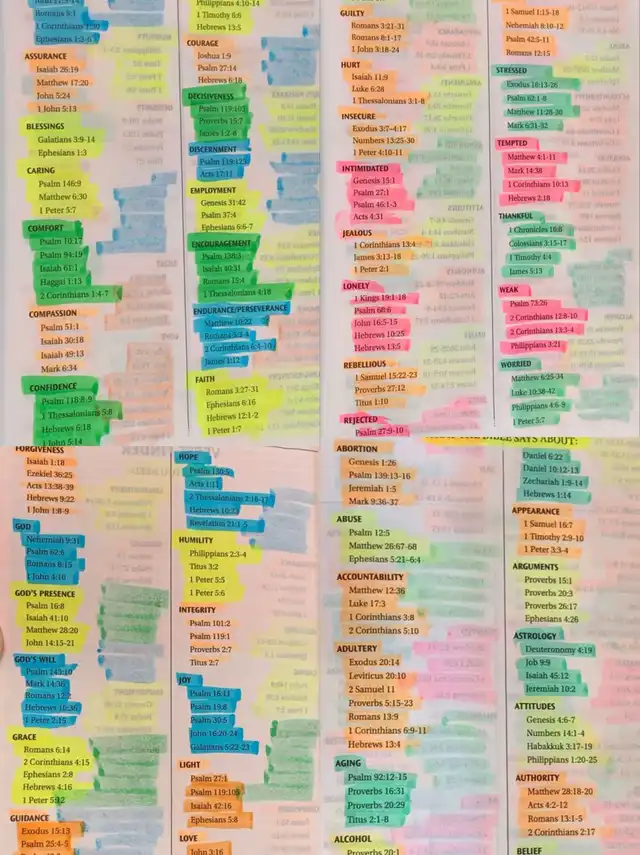 Romans 8:1
1 Corinthians 1:30
Ephesians 1:3-6
ASSURANCE
Isaiah 26:19
Matthew 17:20
John 5:24
1 John 5:13
BLESSINGS
Galatians 3:9-14
Ephesians 1:3
CARING
Psalm 146:9
Matthew 6:30
1 Peter 5:7
COMFORT
Psalm 10:17
Psalm 94:19
Isaiah 61:1
Haggai 1:13
2 Corinthians 1:4-7
COMPASSION
Psalm 51:1
Isaiah 30:18
Isaiah 49:13
Mark 6:34
CONFIDENCE
Psalm 118:8-9
1 Thessalonians 5:8
Hebrews 6:18
1 John 5:14
Philippians 4:10-14
1 Timothy 6:6
Hebrews 13:5
COURAGE
Joshua 1:9
Psalm 27:14
Hebrews 6:18
DECISIVENESS
Psalm 119:105
Proverbs 15:7
James 1:2-8
DISCERNMENT
Psalm 119:125
Acts 17:11
EMPLOYMENT
Genesis 31:42
Psalm 37:4
Ephesians 6:6-7
ENCOURAGEMENT
Psalm 138:3
Isaiah 40:31
Romans 15:4
1 Thessalonians 4:18
ENDURANCE/PERSEVERANCE
Matthew 10:22
Romans 5:3-4
2 Corinthians 6:4-10
James 1:12
FAITH
Romans 3:27-31
Ephesians 6:16
Hebrews 12:1-2
1 Peter 1:7
GUILTY
Romans 3:21-31
Romans 8:1-17
1 John 3:18-24
HURT
Isaiah 11:9
Luke 6:28
1 Thessalonians 3:1-8
INSECURE
Exodus 3:7-4:17
Numbers 13:25-30
1 Peter 4:10-11
INTIMIDATED
Genesis 15:1
Psalm 27:1
Psalm 46:1-3
Acts 4:31
JEALOUS
1 Corinthians 13:4
James 3:13-18
1 Peter 2:1
LONELY
1 Kings 19:1-18
Psalm 68:6
John 16:5-15
Hebrews 10:25
Hebrews 13:5
REBELLIOUS
1 Samuel 15:22-23
Proverbs 27:12
Titus 1:10
REJECTED
Psalm 27:9-10
1 Samuel 1:15-18
Nehemiah 8:10-12
Psalm 42:5-11
Romans 12:15
STRESSED
Exodus 18:13-26
Psalm 62:1-8
Matthew 11:28-30
Mark 6:31-32
TEMPTED
Matthew 4:1-11
Mark 14:38
1 Corinthians 10:13
Hebrews 2:18
THANKFUL
1 Chronicles 16:8
Colossians 3:15-17
1 Timothy 4:4
James 5:13
WEAK
Psalm 73:26
2 Corinthians 12:8-10
2 Corinthians 13:3-4
Philippians 3:21
WORRIED
Matthew 6:25-34
Luke 10:38-42
Philippians 4:6-9
1 Peter 5:7
FORGIVENESS
Isaiah 1:18
Ezekiel 36:25
Acts 13:38-39
Hebrews 9:22
1 John 1:8-9
GOD
Nehemiah 9:31
Psalm 62:6
Romans 8:15
1 John 4:10
GOD'S PRESENCE
Psalm 16:8
Isaiah 41:10
Matthew 28:20
John 14:15-21
GOD'S WILL
Psalm 143:10
Mark 14:36
Romans 12:2
Hebrews 10:36
1 Peter 2:15
GRACE
Romans 6:14
2 Corinthians 4:15
Ephesians 2:8
Hebrews 4:16
1 Peter 5:12
GUIDANCE
Exodus 15:13
Psalm 25:4-5
HOPE
Psalm 130:5
Acts 1:11
2 Thessalonians 2:16-17
Hebrews 10:23
Revelation 21:1-5
HUMILITY
Philippians 2:3-4
Titus 3:2
1 Peter 5:5
1 Peter 5:6
INTEGRITY
Psalm 101:2
Psalm 119:1
Proverbs 2:7
Titus 2:7
JOY
Psalm 16:11
Psalm 19:8
Psalm 30:5
John 16:20-24
Galatians 5:22-23
LIGHT
Psalm 27:1
Psalm 119:105
Isaiah 42:16
Ephesians 5:8
LOVE
John 3:16
ABORTION
Genesis 1:26
Psalm 139:13-16
Jeremiah 1:5
Mark 9:36-37
ABUSE
Psalm 12:5
Matthew 26:67-68
Ephesians 5:21-6:4
ACCOUNTABILITY
Matthew 12:36
Luke 17:3
1 Corinthians 3:8
2 Corinthians 5:10
ADULTERY
Exodus 20:14
Leviticus 20:10
2 Samuel 11
Proverbs 5:15-23
Romans 13:9
1 Corinthians 6:9-11
Hebrews 13:4
AGING
Psalm 92:12-15
Proverbs 16:31
Proverbs 20:29
Titus 2:1-8
ALCOHOL
Proverbs 20:1
BIBLE SAYS ABOUT:
Daniel 6:22
Daniel 10:12-13
Zechariah 1:9-14
Hebrews 1:14
APPEARANCE
1 Samuel 16:7
1 Timothy 2:9-10
1 Peter 3:3-4
ARGUMENTS
Proverbs 15:1
Proverbs 20:3
Proverbs 26:17
Ephesians 4:26
ASTROLOGY
Deuteronomy 4:19
Job 9:9
Isaiah 45:12
Jeremiah 10:2
ATTITUDES
Genesis 4:6-7
Numbers 14:1-4
Habakkuk 3:17-19
Philippians 1:20-25
AUTHORITY
Matthew 28:18-20
Acts 4:2-12
Romans 13:1-5
2 Corinthians 2:17
BELIEF